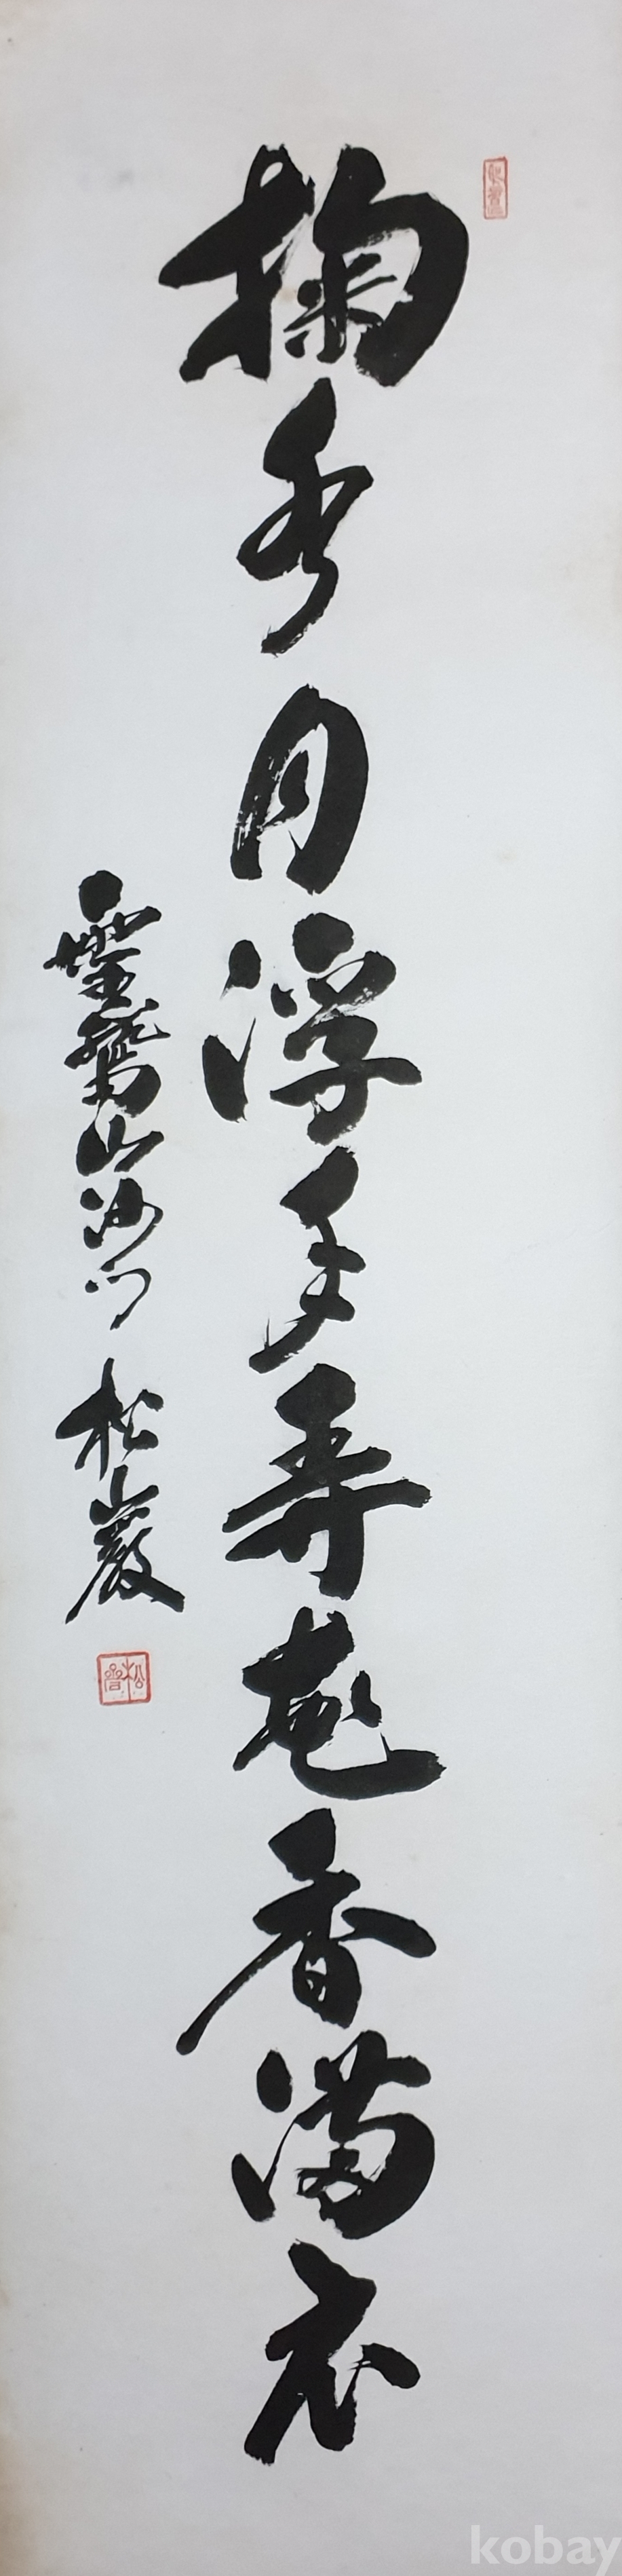 掬水月浮手弄花香滿衣
靈鷲山沙門 松巖
kobay